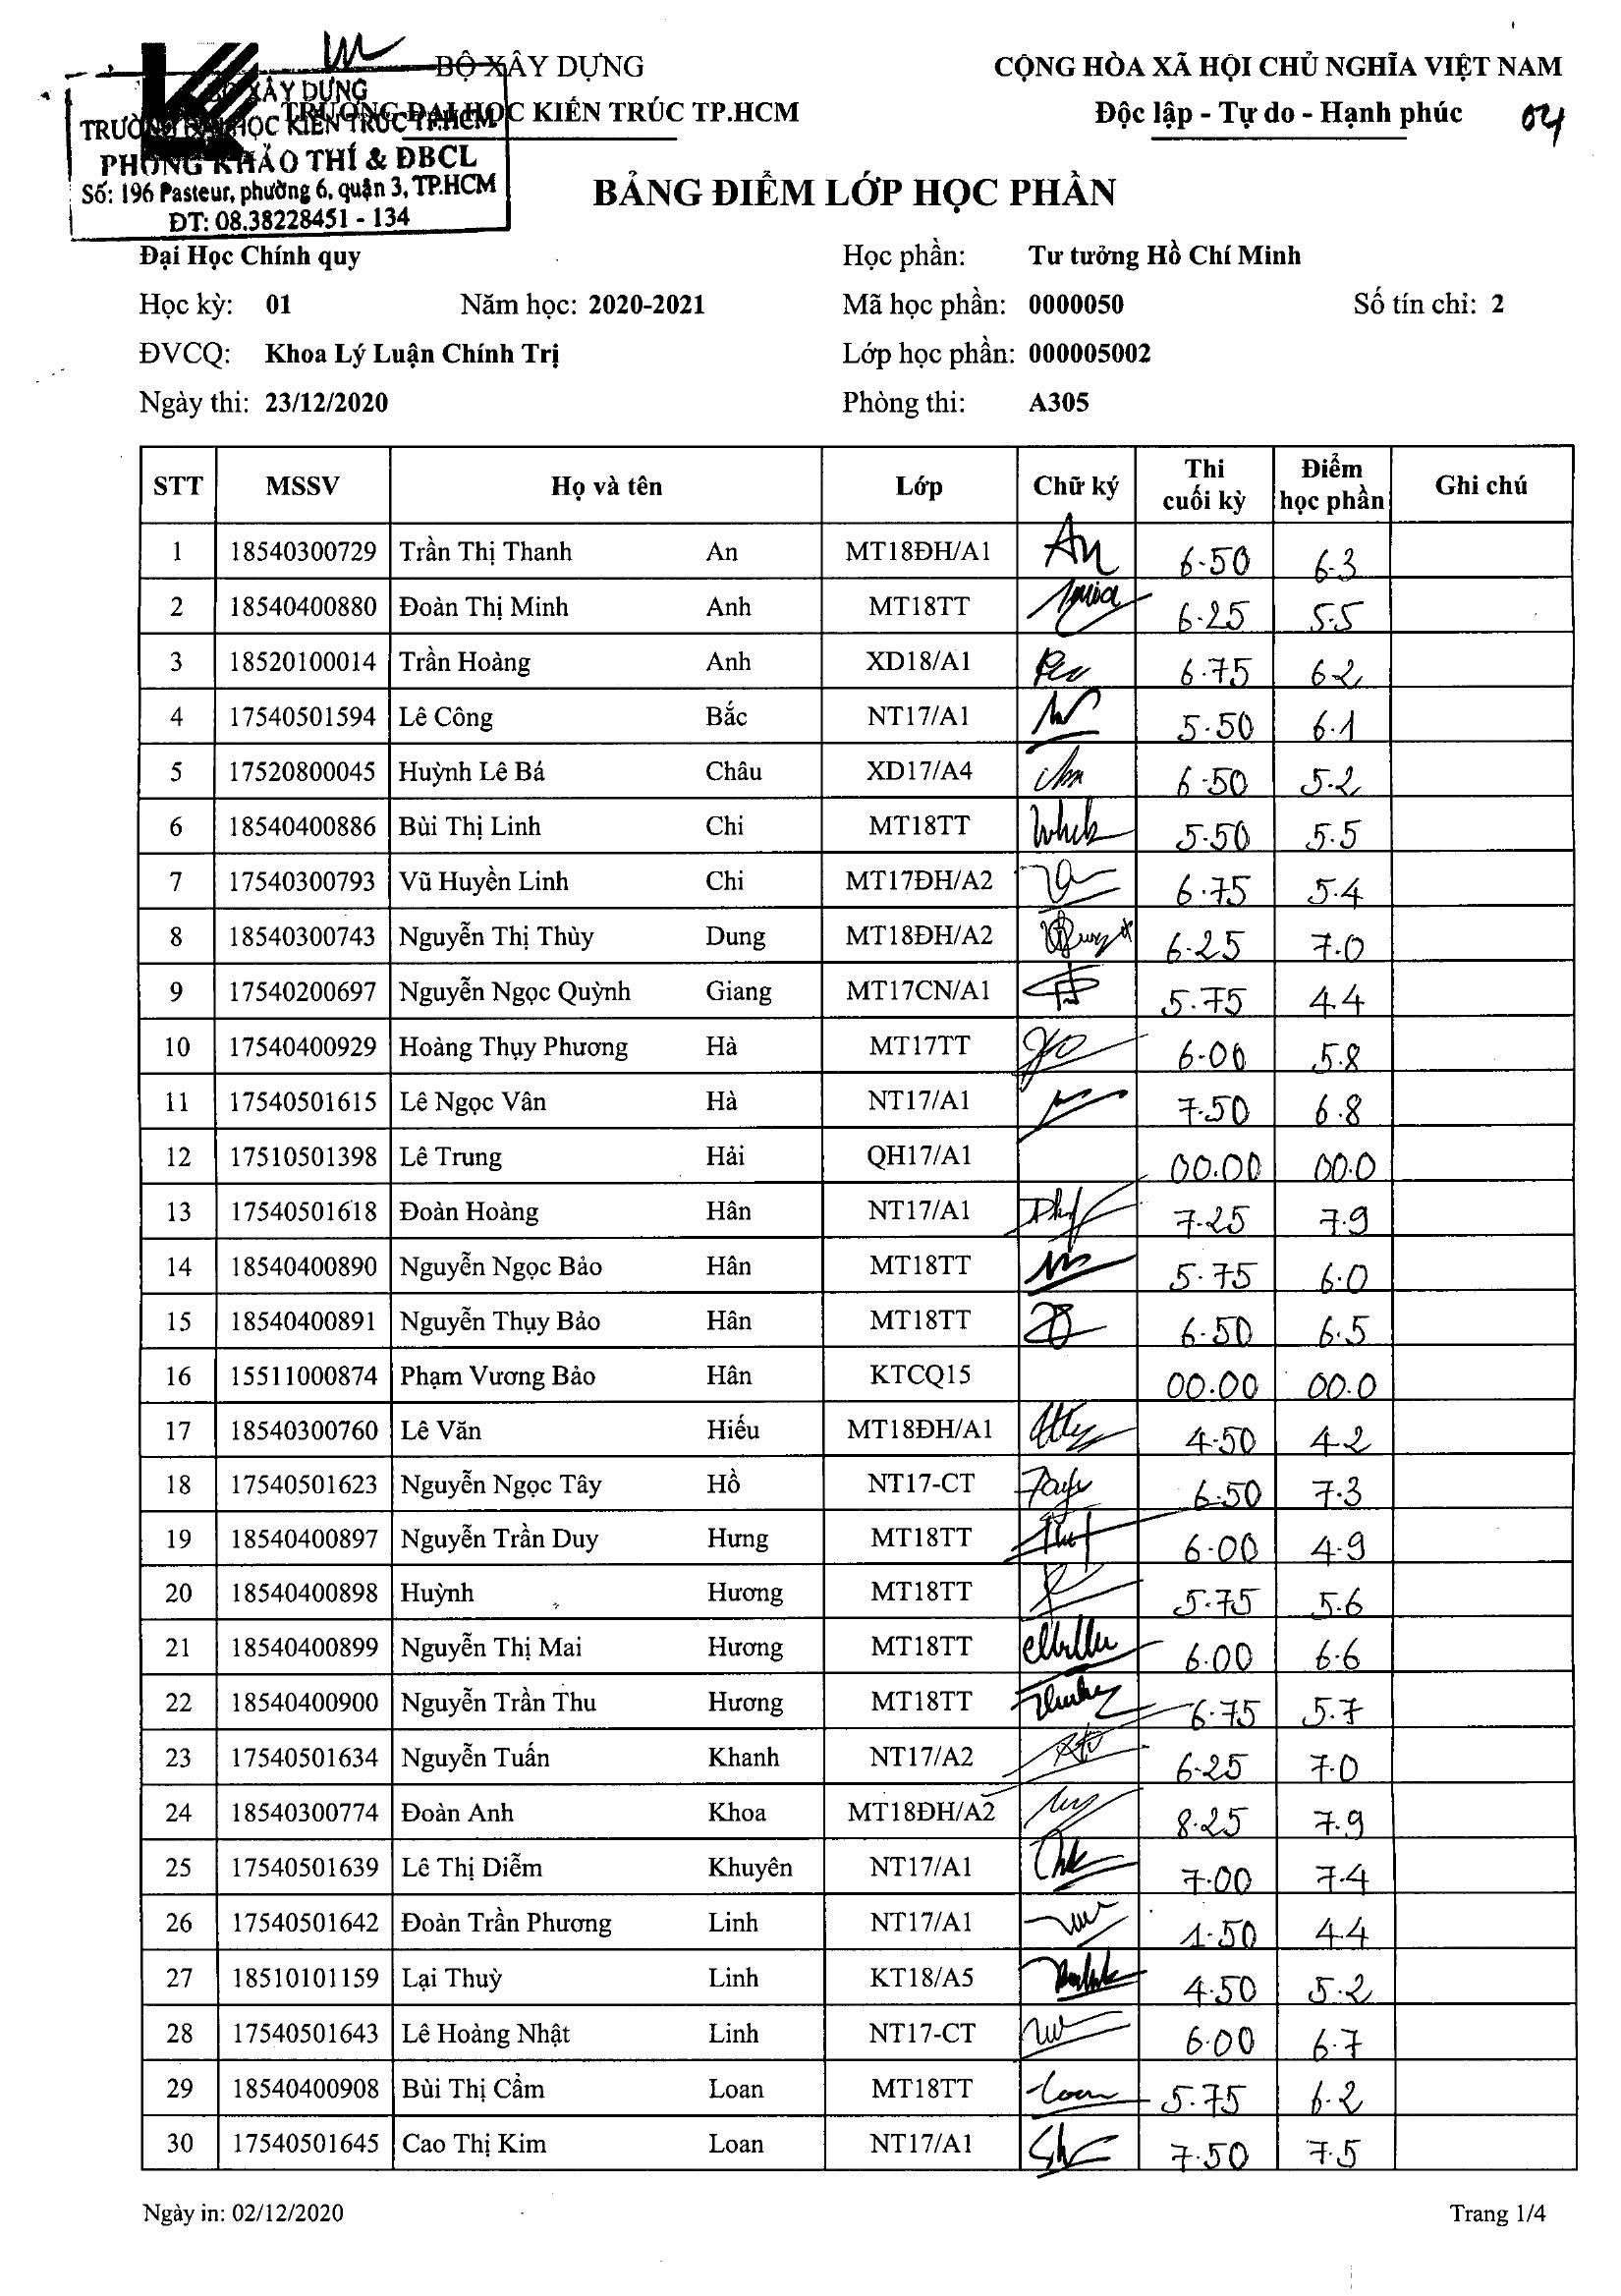 BỘ XÂY DỰNG
TRƯỜNG ĐẠI HỌC KIẾN TRÚC TP.HCM
CỘNG HÒA XÃ HỘI CHỦ NGHĨA VIỆT NAM
Độc lập - Tự do - Hạnh phúc
04
BỘ XÂY DỰNG
TRƯỜNG ĐẠI HỌC KIẾN TRÚC TP.HCM
PHÒNG KHẢO THÍ & ĐBCL
Số: 196 Pasteur, phường 6, quận 3, TP.HCM
ĐT: 08.38228451 - 134
BẢNG ĐIỂM LỚP HỌC PHẦN
Đại Học Chính quy Học phần: Tư tưởng Hồ Chí Minh
Học kỳ: 01 Năm học: 2020-2021 Mã học phần: 0000050 Số tín chỉ: 2
ĐVCQ: Khoa Lý Luận Chính Trị Lớp học phần: 000005002
Ngày thi: 23/12/2020 Phòng thi: A305
STT MSSV Họ và tên Lớp Chữ ký Thi cuối kỳ Điểm học phần Ghi chú
1 18540300729 Trần Thị Thanh An MT18ĐH/A1 An 6.50 6.3
2 18540400880 Đoàn Thị Minh Anh MT18TT 6.25 5.5
3 18520100014 Trần Hoàng Anh XD18/A1 6.75 6.2
4 17540501594 Lê Công Bắc NT17/A1 5.50 6.1
5 17520800045 Huỳnh Lê Bá Châu XD17/A4 6.50 5.2
6 18540400886 Bùi Thị Linh Chi MT18TT 5.50 5.5
7 17540300793 Vũ Huyền Linh Chi MT17ĐH/A2 6.75 5.4
8 18540300743 Nguyễn Thị Thùy Dung MT18ĐH/A2 6.25 7.0
9 17540200697 Nguyễn Ngọc Quỳnh Giang MT17CN/A1 5.75 4.4
10 17540400929 Hoàng Thụy Phương Hà MT17TT 6.00 5.8
11 17540501615 Lê Ngọc Vân Hà NT17/A1 7.50 6.8
12 17510501398 Lê Trung Hải QH17/A1 00.00 00.0
13 17540501618 Đoàn Hoàng Hân NT17/A1 7.25 7.9
14 18540400890 Nguyễn Ngọc Bảo Hân MT18TT 5.75 6.0
15 18540400891 Nguyễn Thụy Bảo Hân MT18TT 6.50 6.5
16 15511000874 Phạm Vương Bảo Hân KTCQ15 00.00 00.0
17 18540300760 Lê Văn Hiếu MT18ĐH/A1 4.50 4.2
18 17540501623 Nguyễn Ngọc Tây Hồ NT17-CT 6.50 7.3
19 18540400897 Nguyễn Trần Duy Hưng MT18TT 6.00 4.9
20 18540400898 Huỳnh Hương MT18TT 5.75 5.6
21 18540400899 Nguyễn Thị Mai Hương MT18TT 6.00 6.6
22 18540400900 Nguyễn Trần Thu Hương MT18TT 6.75 5.7
23 17540501634 Nguyễn Tuấn Khanh NT17/A2 6.25 7.0
24 18540300774 Đoàn Anh Khoa MT18ĐH/A2 8.25 7.9
25 17540501639 Lê Thị Diễm Khuyên NT17/A1 7.00 7.4
26 17540501642 Đoàn Trần Phương Linh NT17/A1 1.50 4.4
27 18510101159 Lại Thuỳ Linh KT18/A5 4.50 5.2
28 17540501643 Lê Hoàng Nhật Linh NT17-CT 6.00 6.7
29 18540400908 Bùi Thị Cẩm Loan MT18TT Loan 5.75 6.2
30 17540501645 Cao Thị Kim Loan NT17/A1 7.50 7.5
Ngày in: 02/12/2020 Trang 1/4